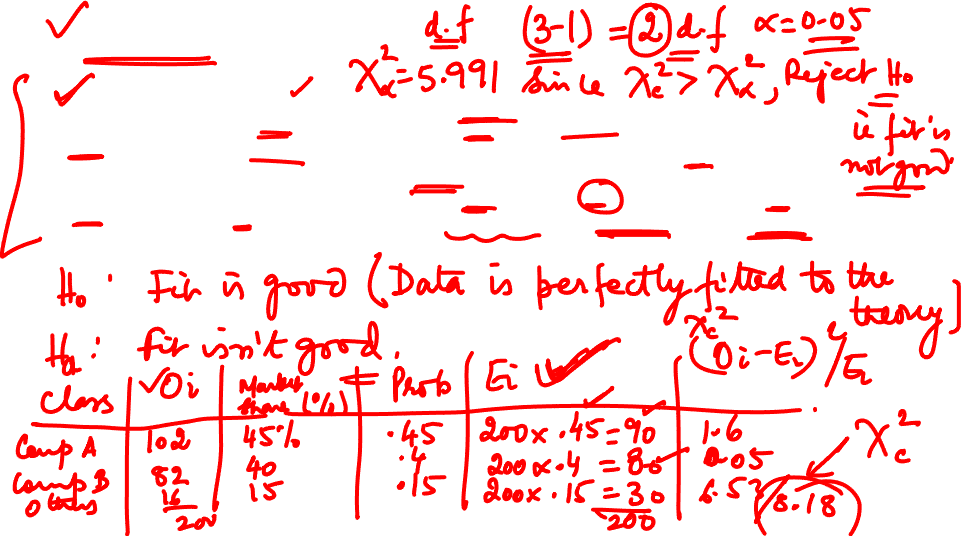 d.f (3-1) = 2 d.f α=0.05
χ²α=5.991 Since χ²c > χ²α, Reject H₀
ie fit is
not good
H₀: Fit is good (Data is perfectly fitted to the
theory)
H₁: fit isn't good.
Class Oi Market share (%) Prob Ei χ²c (Oi-Ei)²/Ei
Comp A 102 45% .45 200x.45=90 1.6
Comp B 82 40 .4 200x.4=80 0.05
Others 16 15 .15 200x.15=30 6.53
200 200 8.18 χ²c